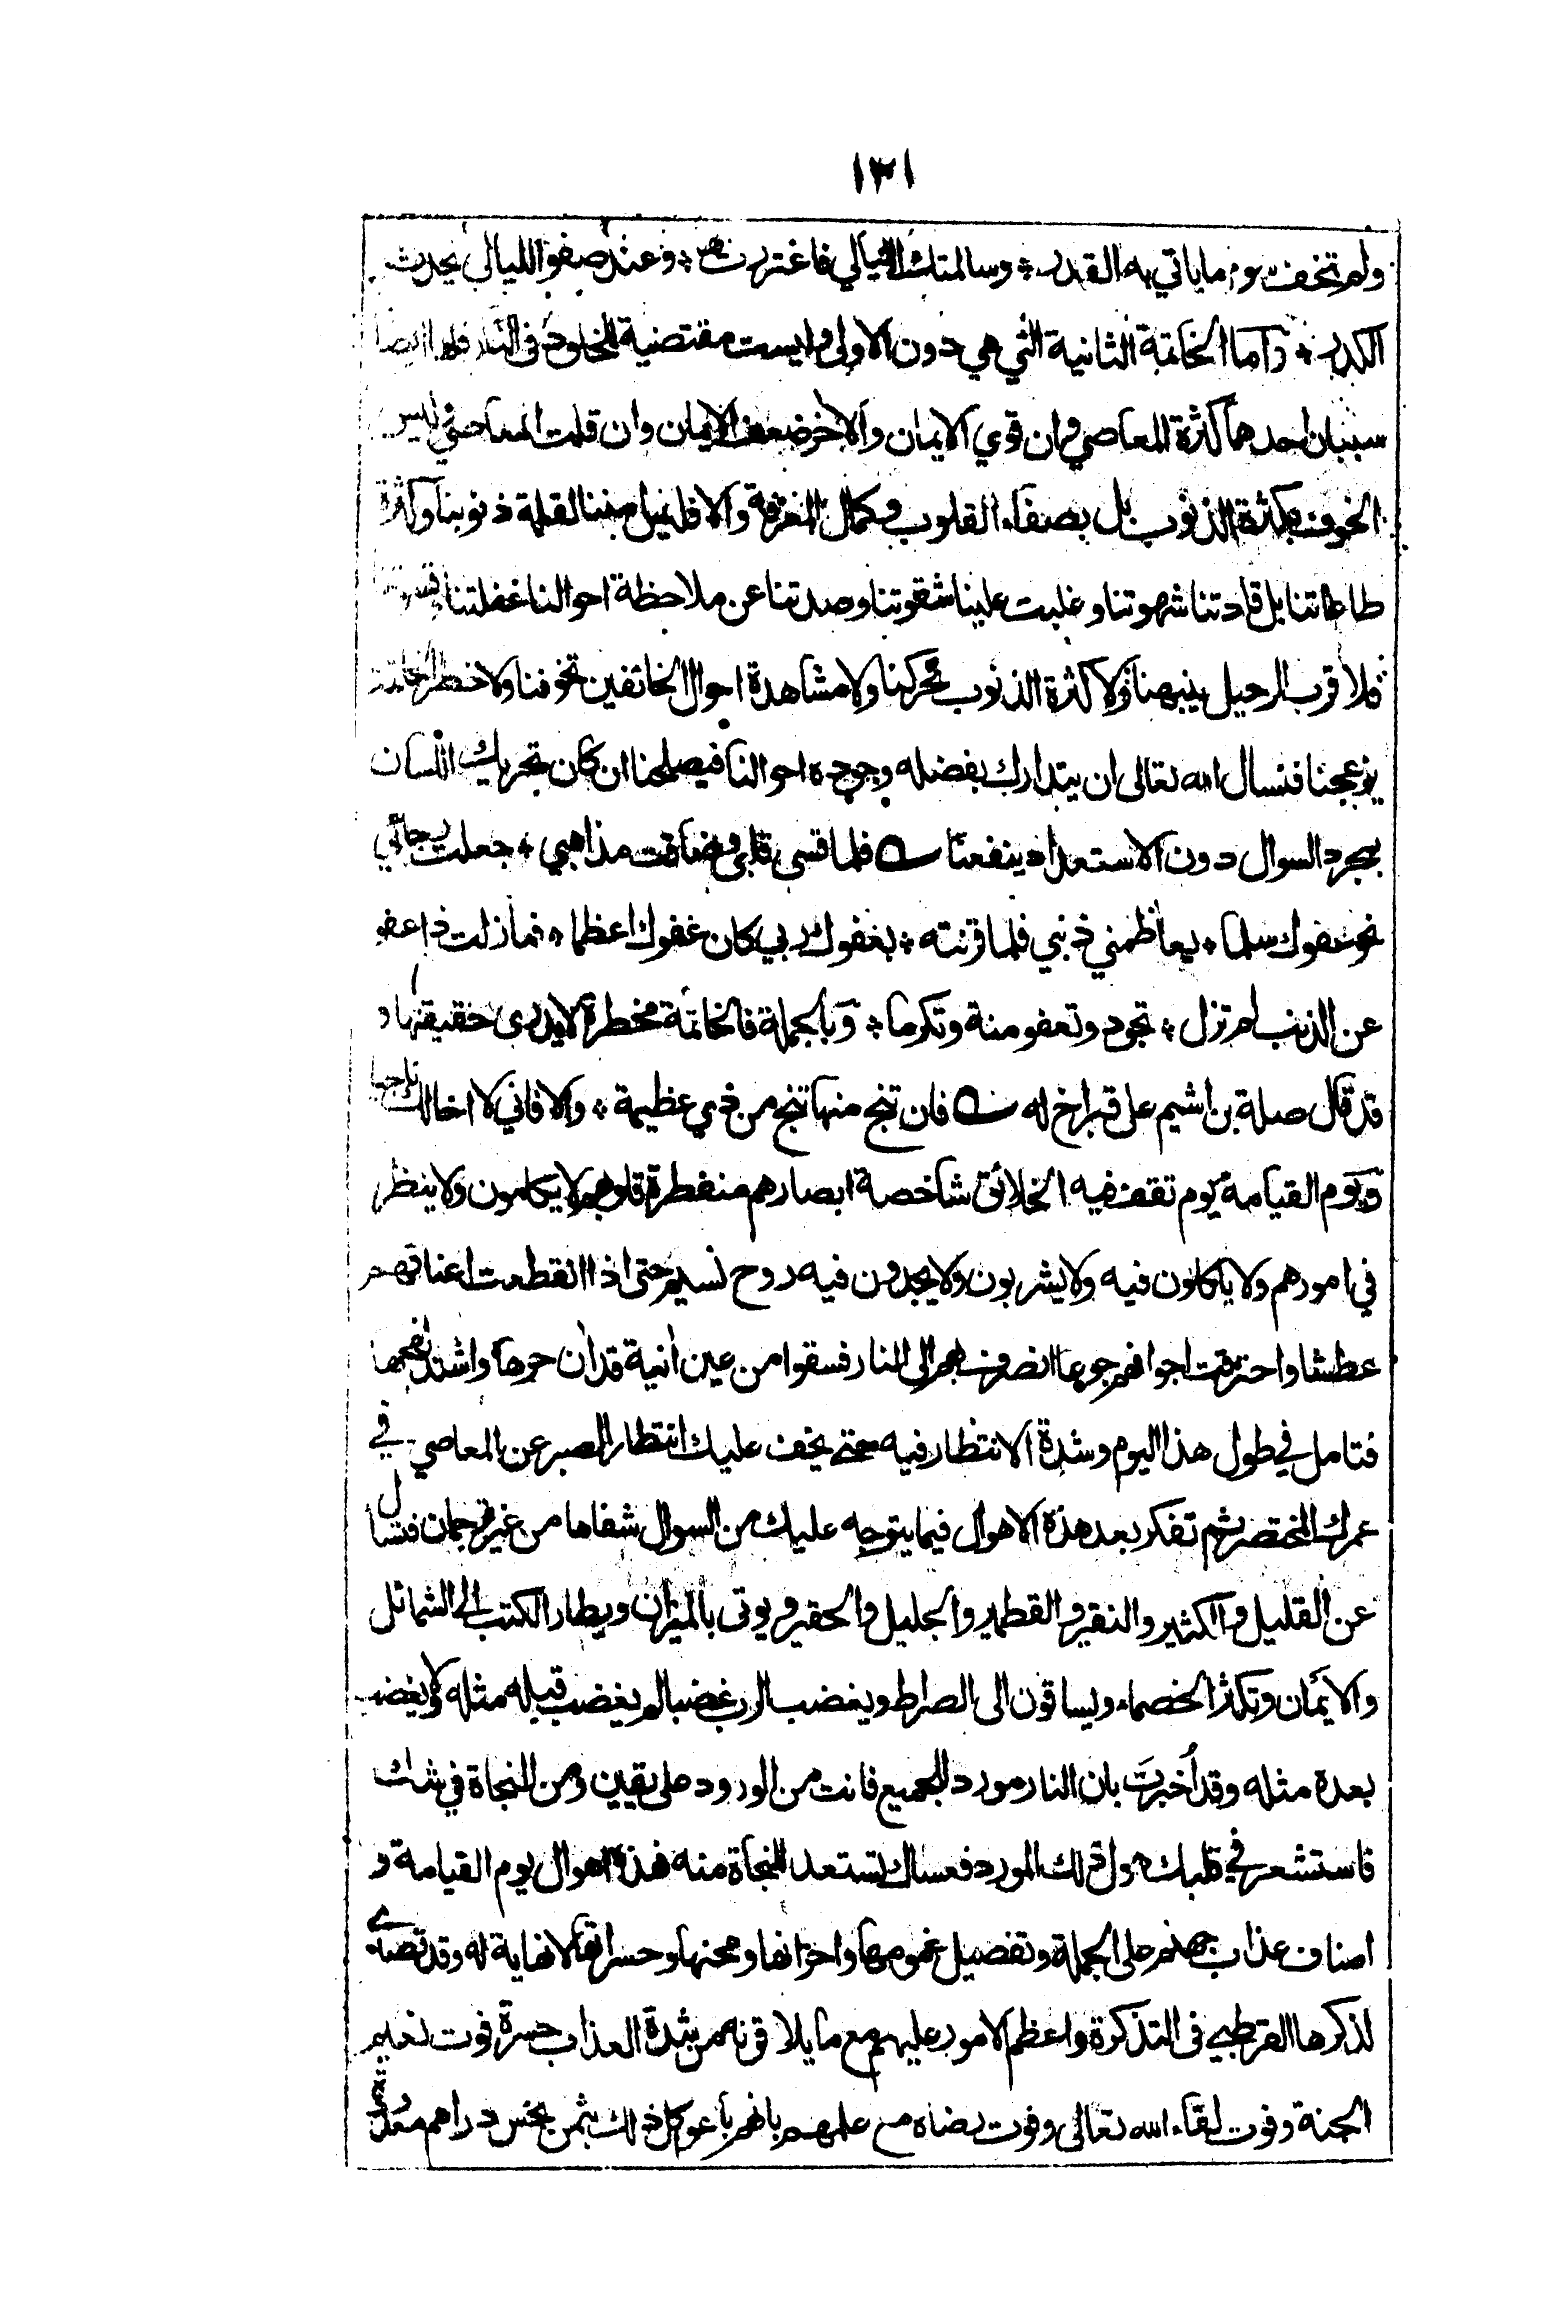 ١٣١
ولم تخف يوم ما ياتي به القدر * وسالمتك الليالي فاغتررت بها * وعند صفو الليالي يحدث
الكدر * واما الخاتمة الثانية التي هي دون الاولى وليست مقتضية للخلود في النار فلها ايضا
سببان احدهما كثرة المعاصي وان قوي الايمان والاخر ضعف الايمان وان قلت المعاصي فليس
الخوف بكثرة الذنوب بل بصفاء القلوب وكمال المعرفة والا فليس امننا لقلة ذنوبنا وكثرة
طاعاتنا بل قادتنا شهوتنا وغلبت علينا شقوتنا وصدتنا عن ملاحظة احوالنا غفلتنا
فلا قرب الرحيل ينبهنا ولا كثرة الذنوب تحركنا ولا مشاهدة احوال الخائفين تخوفنا ولا خطر الخاتمة
يزعجنا فنسال الله تعالى ان يتدارك بفضله وجوده احوالنا فيصلحنا ان كان تحريك اللسان
بمجرد السوال دون الاستعداد ينفعنا فلما قسى قلبي وضاقت مذاهبي * جعلت رجائي
نحو عفوك سلما * يعاظمني ذنبي فلما قرنته * بعفوك ربي كان عفوك اعظما * فما زلت ذا عفو
عن الذنب لم تزل * تجود وتعفو منة وتكرما * وبالجملة فالخاتمة مخطرة لا يدرى حقيقتها و
قد قال صلة بن اشيم على قبر اخ له فان تنج منها تنج من ذي عظيمة * والا فاني لا اخالك ناجيا
ويوم القيامة يوم تقف فيه الخلائق شاخصة ابصارهم منفطرة قلوبهم لا يكلمون ولا ينظر
في امورهم ولا ياكلون فيه ولا يشربون ولا يجدون فيه روح نسيم حتى اذا انقطعت اعناقهم
عطشا واحترقت اجوافهم جوعا انصرف بهم الى النار فسقوا من عين انية قد ان حرها واشتد نفحها
فتامل في طول هذا اليوم وشدة الانتظار فيه حتى يخف عليك انتظار الصبر عن المعاصي في
عمرك المختصر ثم تفكر بعد هذه الاهوال فيما يتوجه عليك من السوال شفاها من غير ترجمان فتسال
عن القليل والكثير والنقير والقطمير والجليل والحقير ويوتى بالميزان ويطار الكتب الى الشمائل
والايمان وتكثر الخصماء ويساقون الى الصراط ويغضب الرب غضبا لم يغضب قبله مثله ولا يغضب
بعده مثله وقد أخبرت بان النار مورد للجميع فانت من الورود على يقين ومن النجاة في شك
فاستشعر في قلبك هول ذلك المورد فعساك تستعد للنجاة منه هذه اهوال يوم القيامة و
اصناف عذاب جهنم على الجملة وتفصيل غمومها واحزانها ومحنها وحسراتها لا نهاية له وقد تصدى
لذكرها القرطبي في التذكرة واعظم الامور عليهم مع ما يلاقونه من شدة العذاب حسرة فوت نعيم
الجنة وفوت لقاء الله تعالى وفوت رضاه مع علمهم بانهم باعو كل ذلك بثمن بخس دراهم معدودة